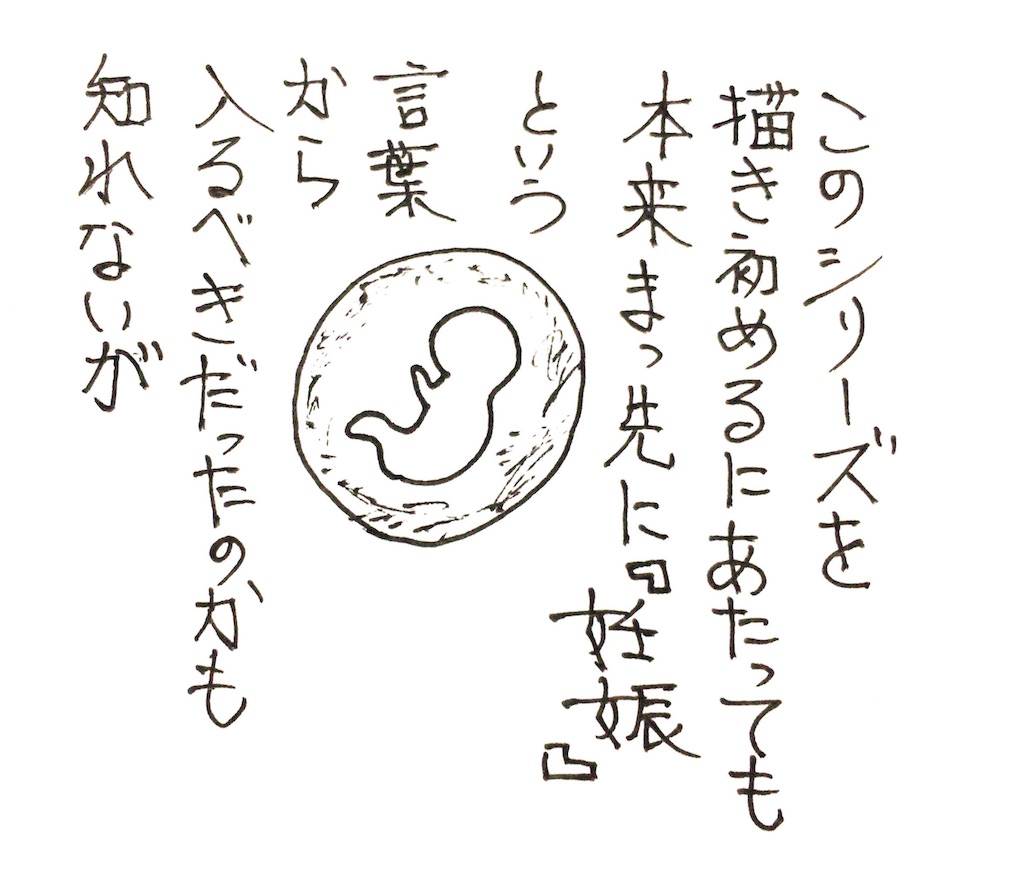 このシリーズを
描き初めるにあたっても
本来まっ先に『妊娠』
という
言葉
から
入るべきだったのかも
知れないが